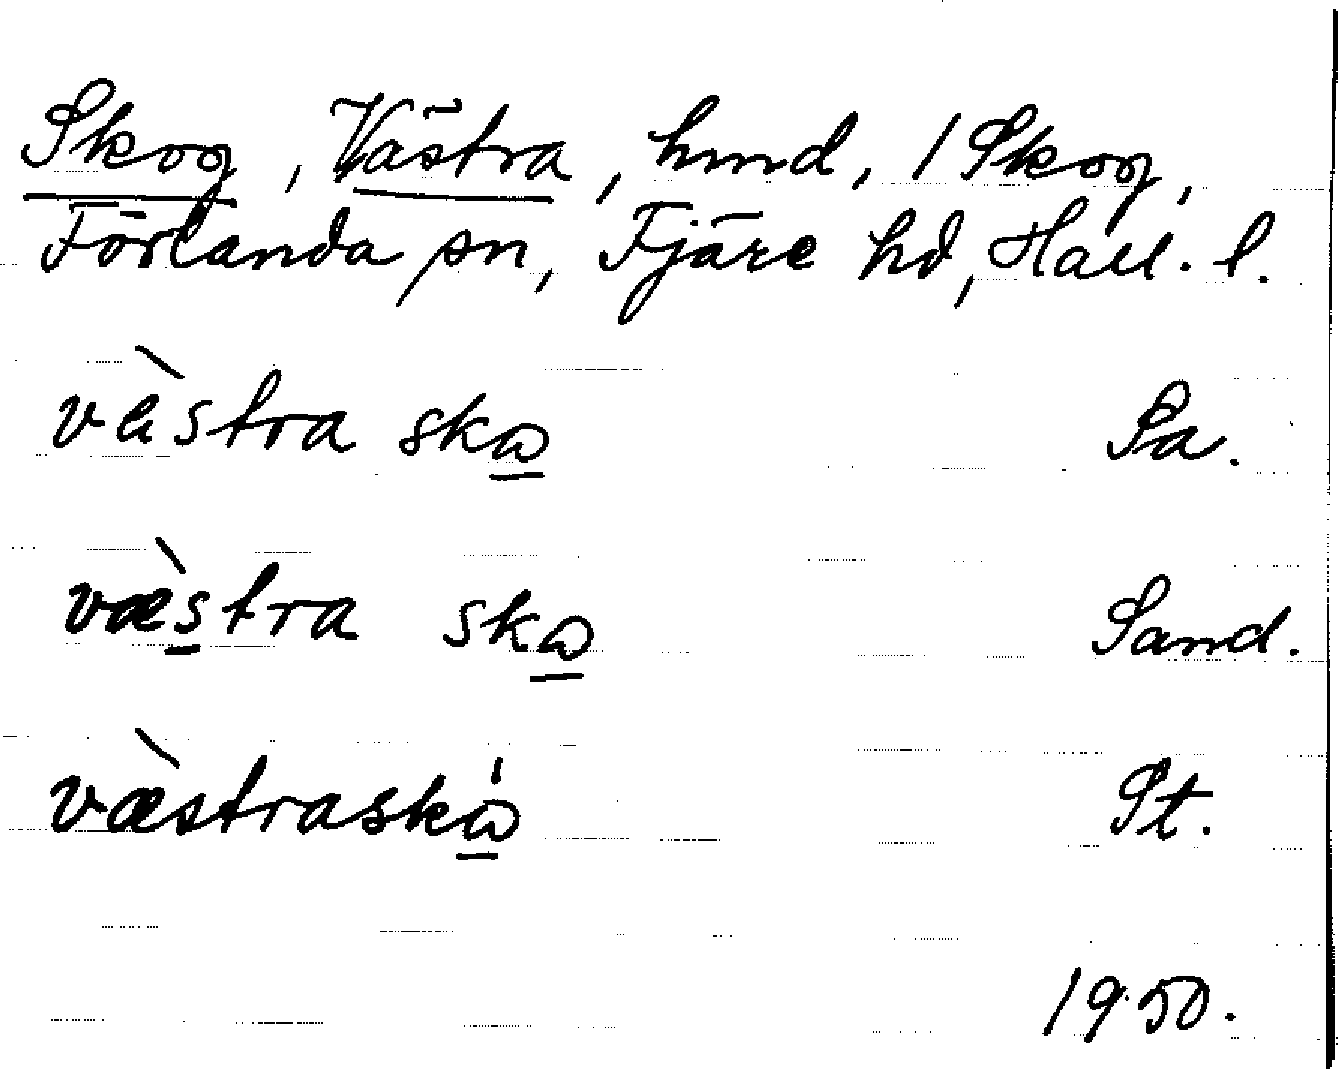 Skog, Västra, hmd, 1 Skog,
Förlanda sn, Fjäre hd, Hall. l.
vàstra skɷ Sa.
væ̀stra skɷ Sand.
væ̀straskɷ́ St.
1950.